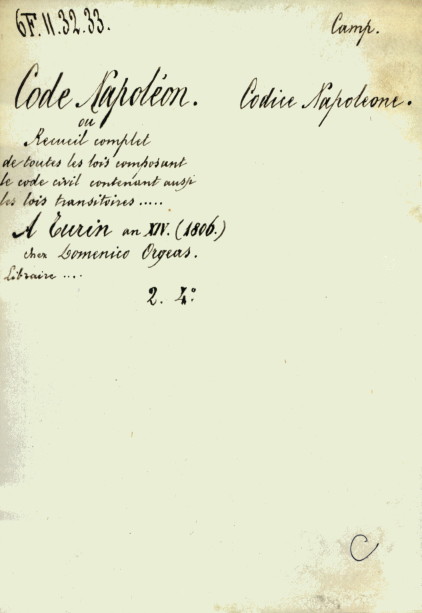 6F. 11. 32. 33.
Camp.
Code Napoléon. Codice Napoleone.
ou
Recueil complet
de toutes les lois composant
le code civil contenant aussi
les lois transitoires .....
A Turin an XIV. (1806.)
chez Domenico Orgeas.
Libraire ....
2. 4.°
C